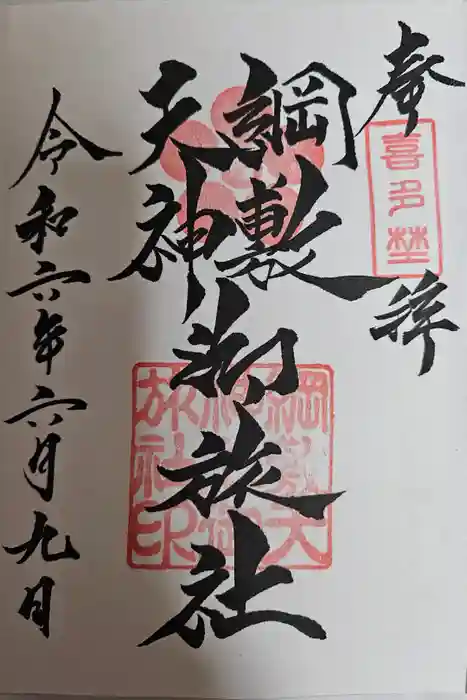 奉拝
喜多埜
綱敷
天神
御旅社
綱敷天
神御
旅社印
令和六年六月九日